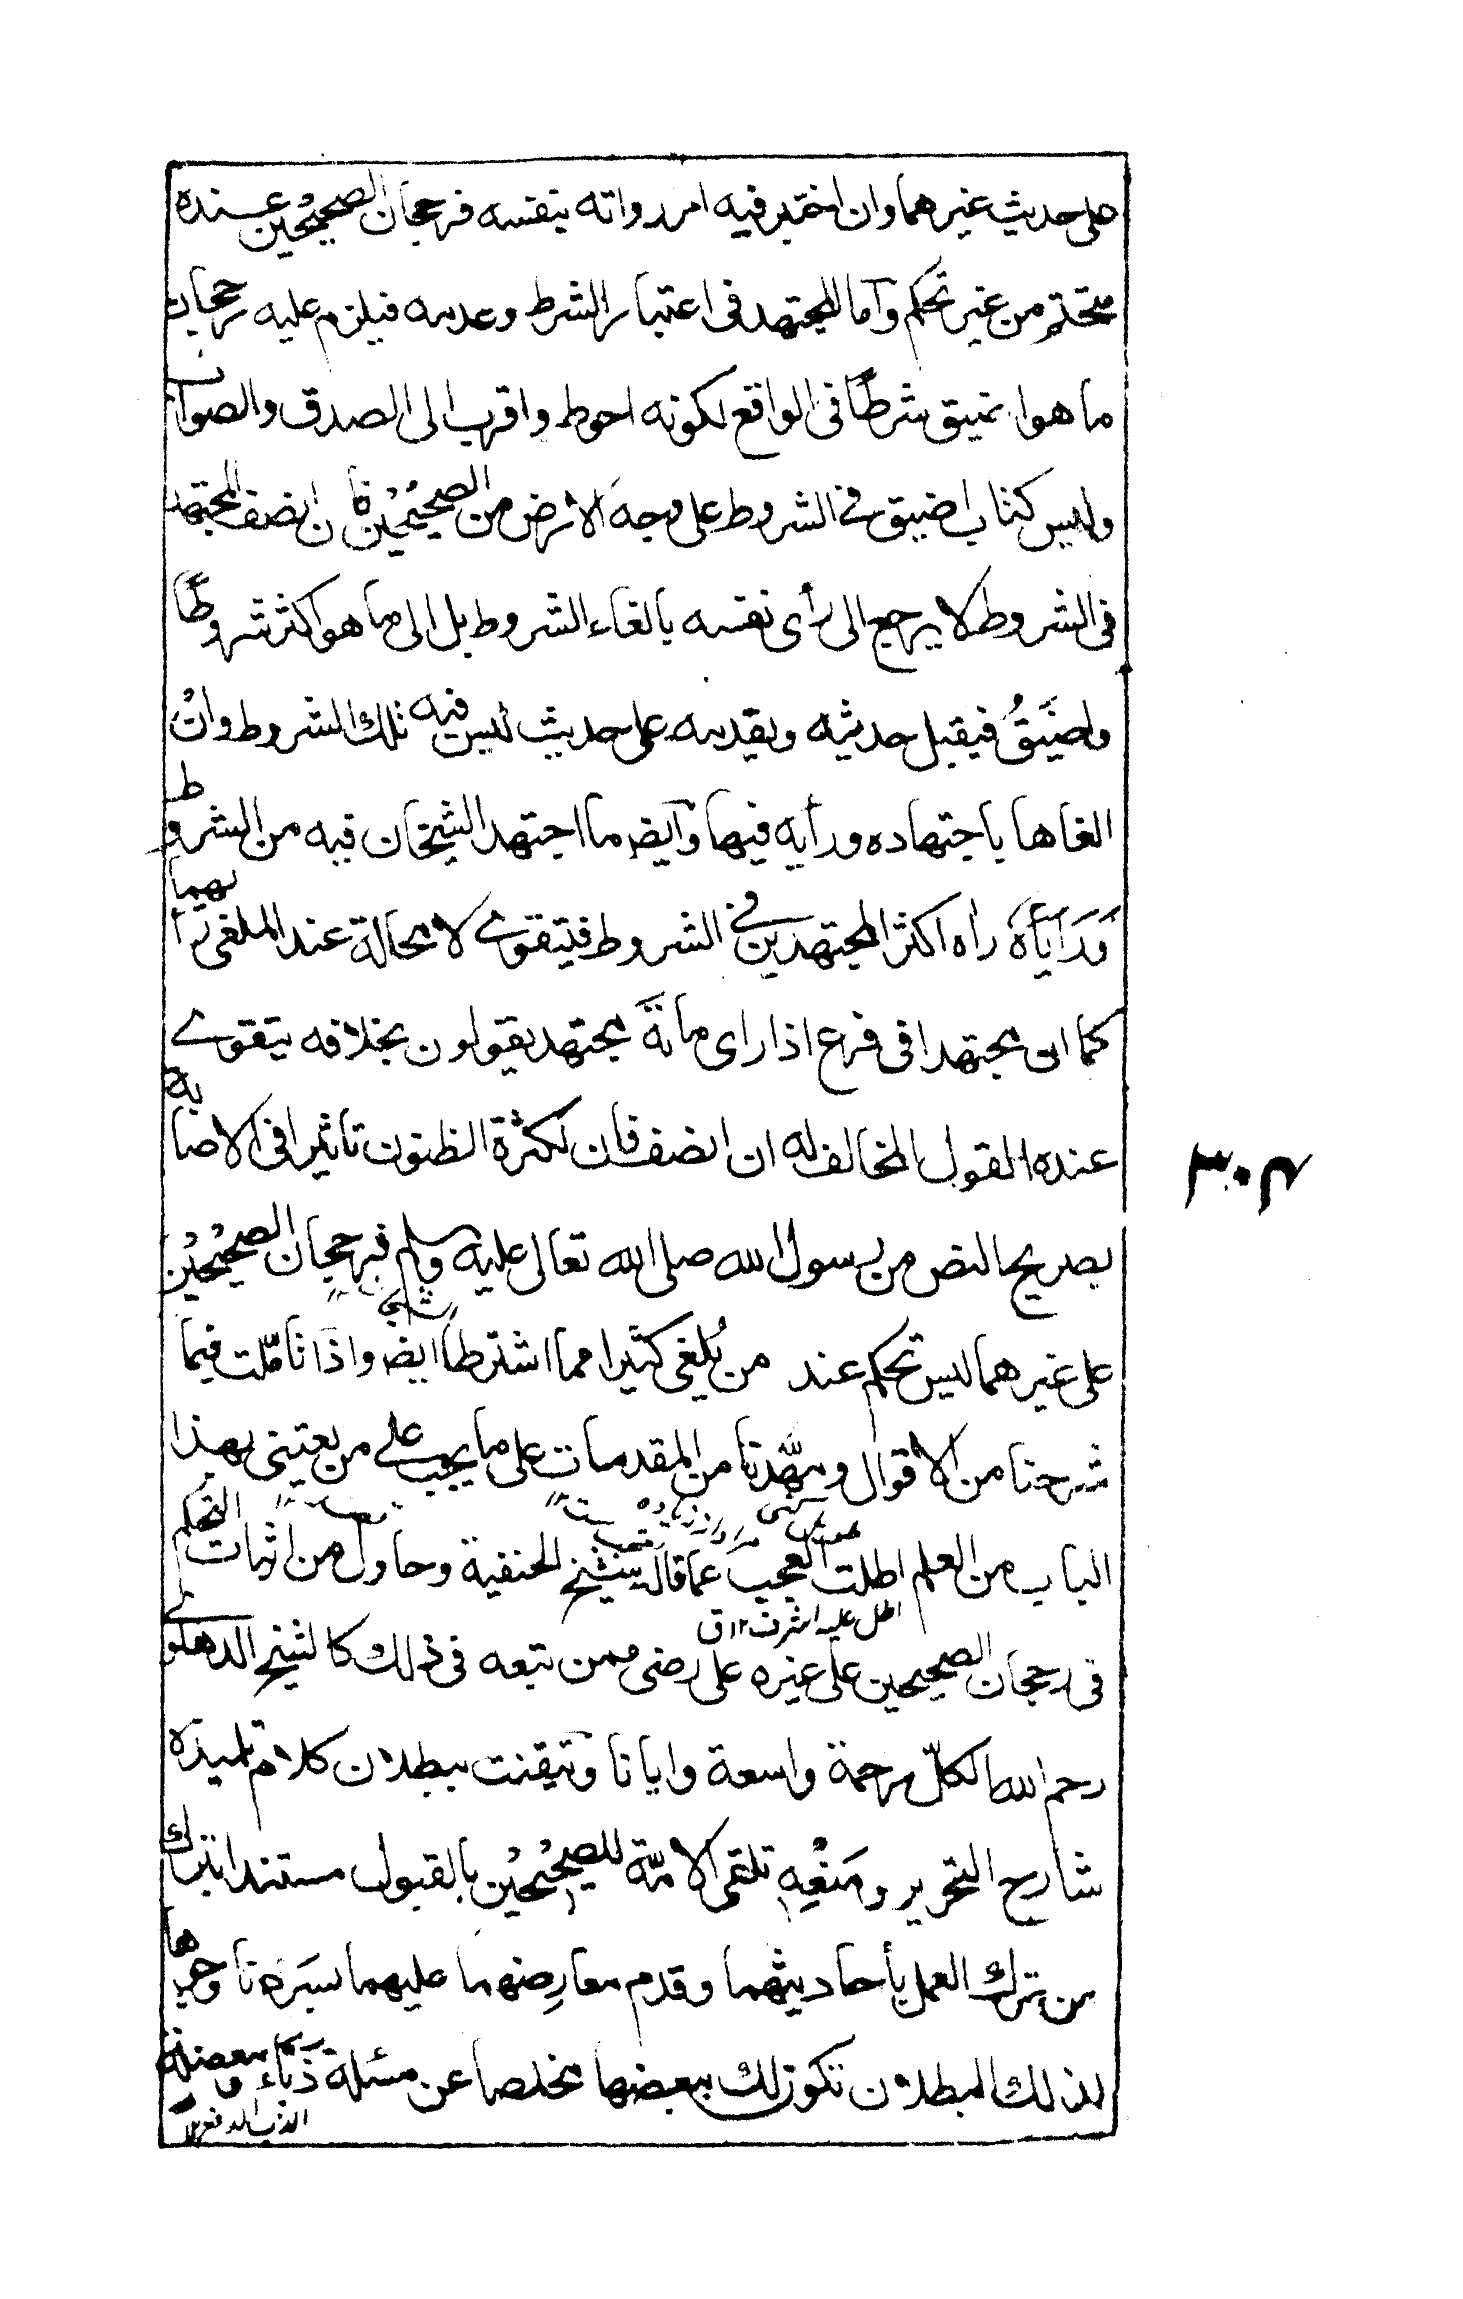 على حديث غيرهما وان اختبر فيه امر رواته بنفسه فرجحان الصحيحين عنده
متحتم من غير تحكم وأما المجتهد في اعتبار الشرط وعدمه فيلزم عليه رجحان
ما هو اضيق شرطًا في الواقع لكونه احوط واقرب الى الصدق والصواب
وليس كتاب اضيق في الشروط على وجه الارض من الصحيحين فان انصف المجتهد
في الشروط لا يرجع الى رأى نفسه بالغاء الشروط بل الى ما هو اكثر شروطًا
واضيَقُ فيقبل حديثه ويقدمه على حديث ليس فيه تلك الشروط وان
الغاها باجتهاده ورأيه فيها وأيضا ما اجتهد الشيخان فيه من الشروط
ورأياه راه اكثر المجتهدين في الشروط فيتقوى لا محالة عند الملغى رأيهما
كما ان مجتهدا في فرع اذا راى مائة مجتهد يقولون بخلافه يتقوى
عنده القول المخالف له ان انصف فان لكثرة الظنون تاثيرا في الاصابة
بصريح النص من رسول الله صلى الله تعالى عليه وسلم فرجحان الصحيحين
على غيرهما ليس تحكم عند من يُلغى كثيرا مما اشترطا ايضا واذا تأمّلت فيما
شرحنا من الاقوال ومهّدنا من المقدمات على ما يجب على من يعتنى بهذا
الباب من العلم اطلت العجب عما قال شيخ الحنفية وحاول من اثبات التحكم
اطل عليه اشرف ١٢ ق
في رجحان الصحيحين على غيره على رضى ممن تبعه في ذلك كالشيخ الدهلوى
رحم الله الكلّ رحمة واسعة وايانا وتيقنت ببطلان كلام تلميذه
شارح التحرير ومَنعِه تلقى الامّة للصحيحين بالقبول مستندا بترك
من ترك العمل بأحاديثهما وقدم معارِضهما عليهما بسَرْدنا وجوها
لذلك البطلان تكون لك ببعضها مخلصا عن مسئلة
٣٠٤